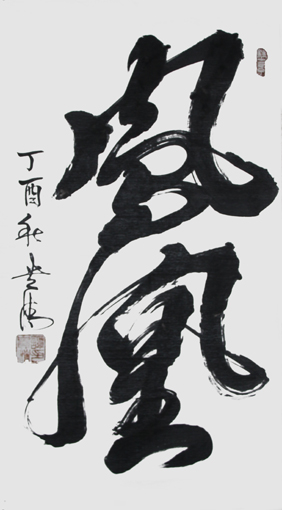 鳳凰
丁酉秋